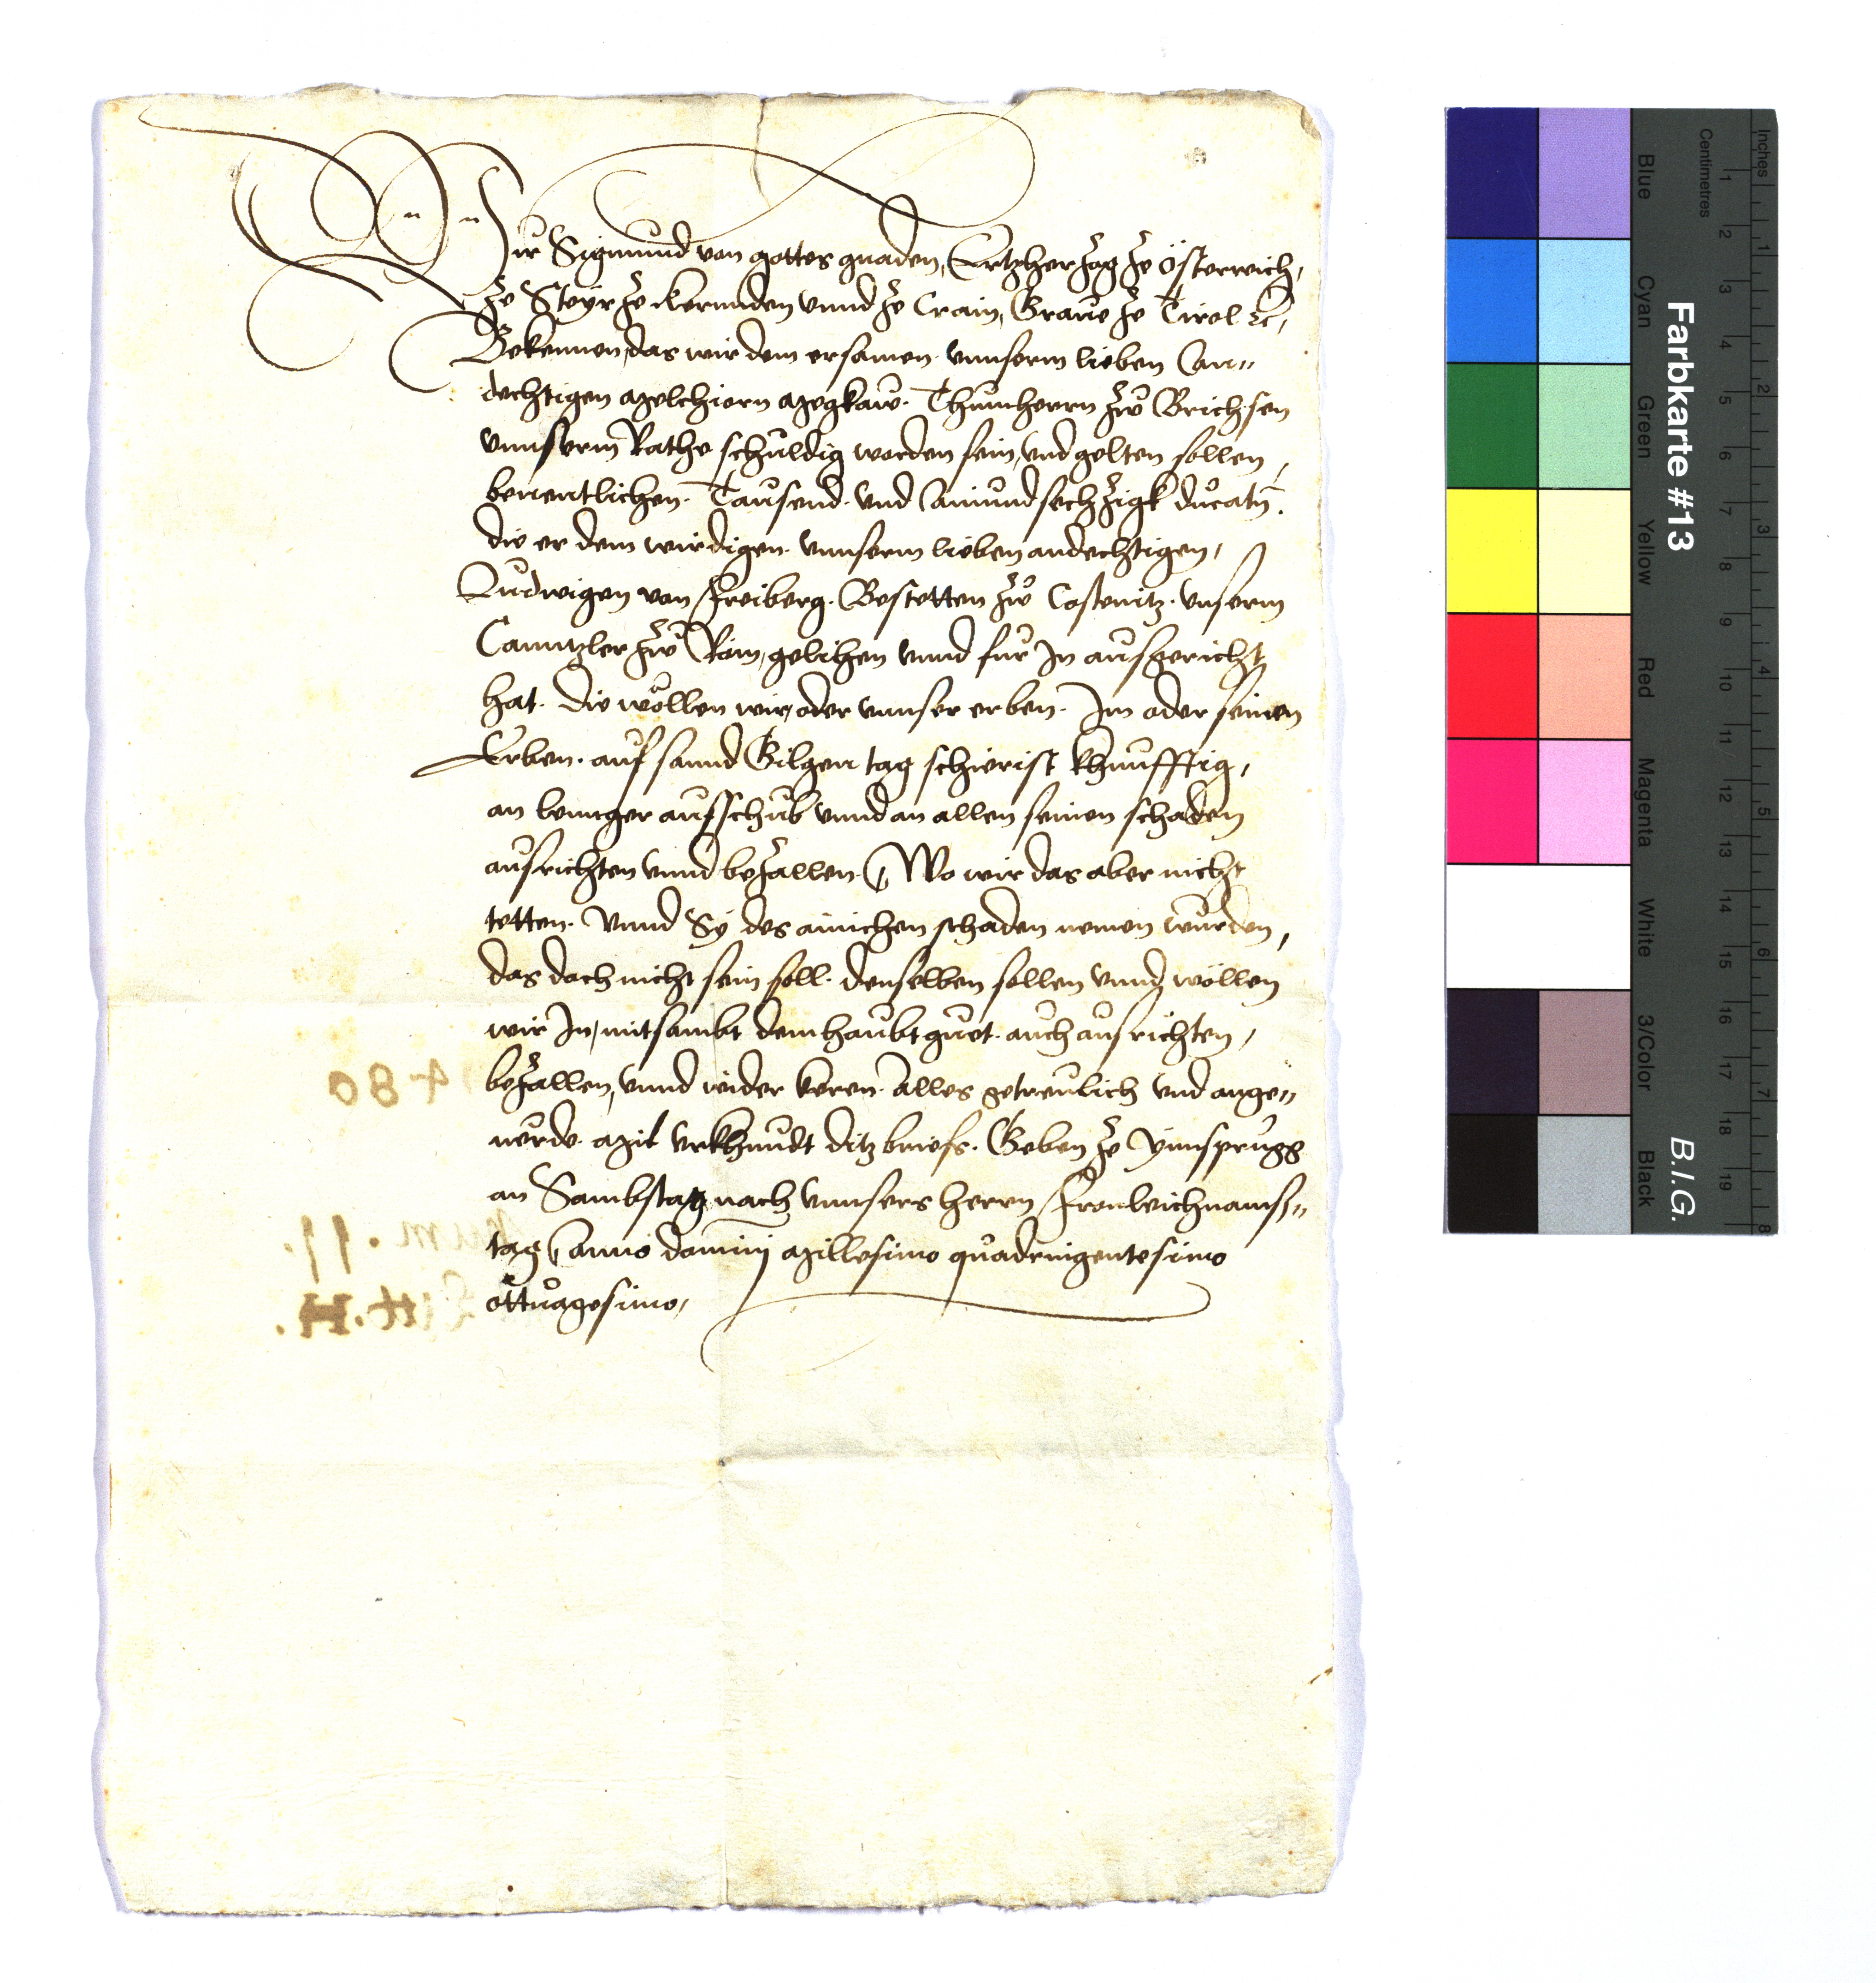 Wir Sigmund von gottes gnaden, Ertzherzog ze Österreich,
ze Steyr ze Kernnden vnnd ze Crain, Graue ze Tirol etc,
Bekennen, das wir dem ersamen vnnserm lieben An„
dechtigen Melchiorn Megkaw. Thumherrn zw Brichsen
vnnserm Rathe schuldig worden sein, vnd gelten sollen,
benentlichen. Tausend. vnd Ainundsechzigk ducatn.
die er dem wirdigen. vnnserm lieben andechtigen,
Ludwigen von Freiberg. Bestetten zw Costenitz. vnserm
Canntzler zw Rom, gelihen vnnd fur In ausgericht
hat. die wöllen wir, oder vnnser erben. Im oder seinen
Erben. auf sannd Gilgen tag schierist khunfftig,
an lennger aufschub vnnd an allen seinen schaden
ausrichten vnnd bezallen. Wo wir das aber nicht
tetten. vnnd Sy des ainichen schaden nemen wurden,
das doch nicht sein soll. denselben sollen vnnd wöllen
wir In, mitsambt dem haubtguot. auch ausrichten,
bezallen, vnnd wider keren. alles getreulich vnd ange„
uerde. Mit vrkhundt ditz briefs. Geben ze Ynnsprugg
an Sambstag nach vnnsers herrn Fronleichnams„
tag Anno domini Millesimo quadringentesimo
ottuagesimo,
480
Num. 11.
Litt. H.
Farbkarte #13
B.I.G.
Blue
Cyan
Green
Yellow
Red
Magenta
White
3/Color
Black
Centimetres
1 2 3 4 5 6 7 8 9 10 11 12 13 14 15 16 17 18 19
Inches
1 2 3 4 5 6 7 8